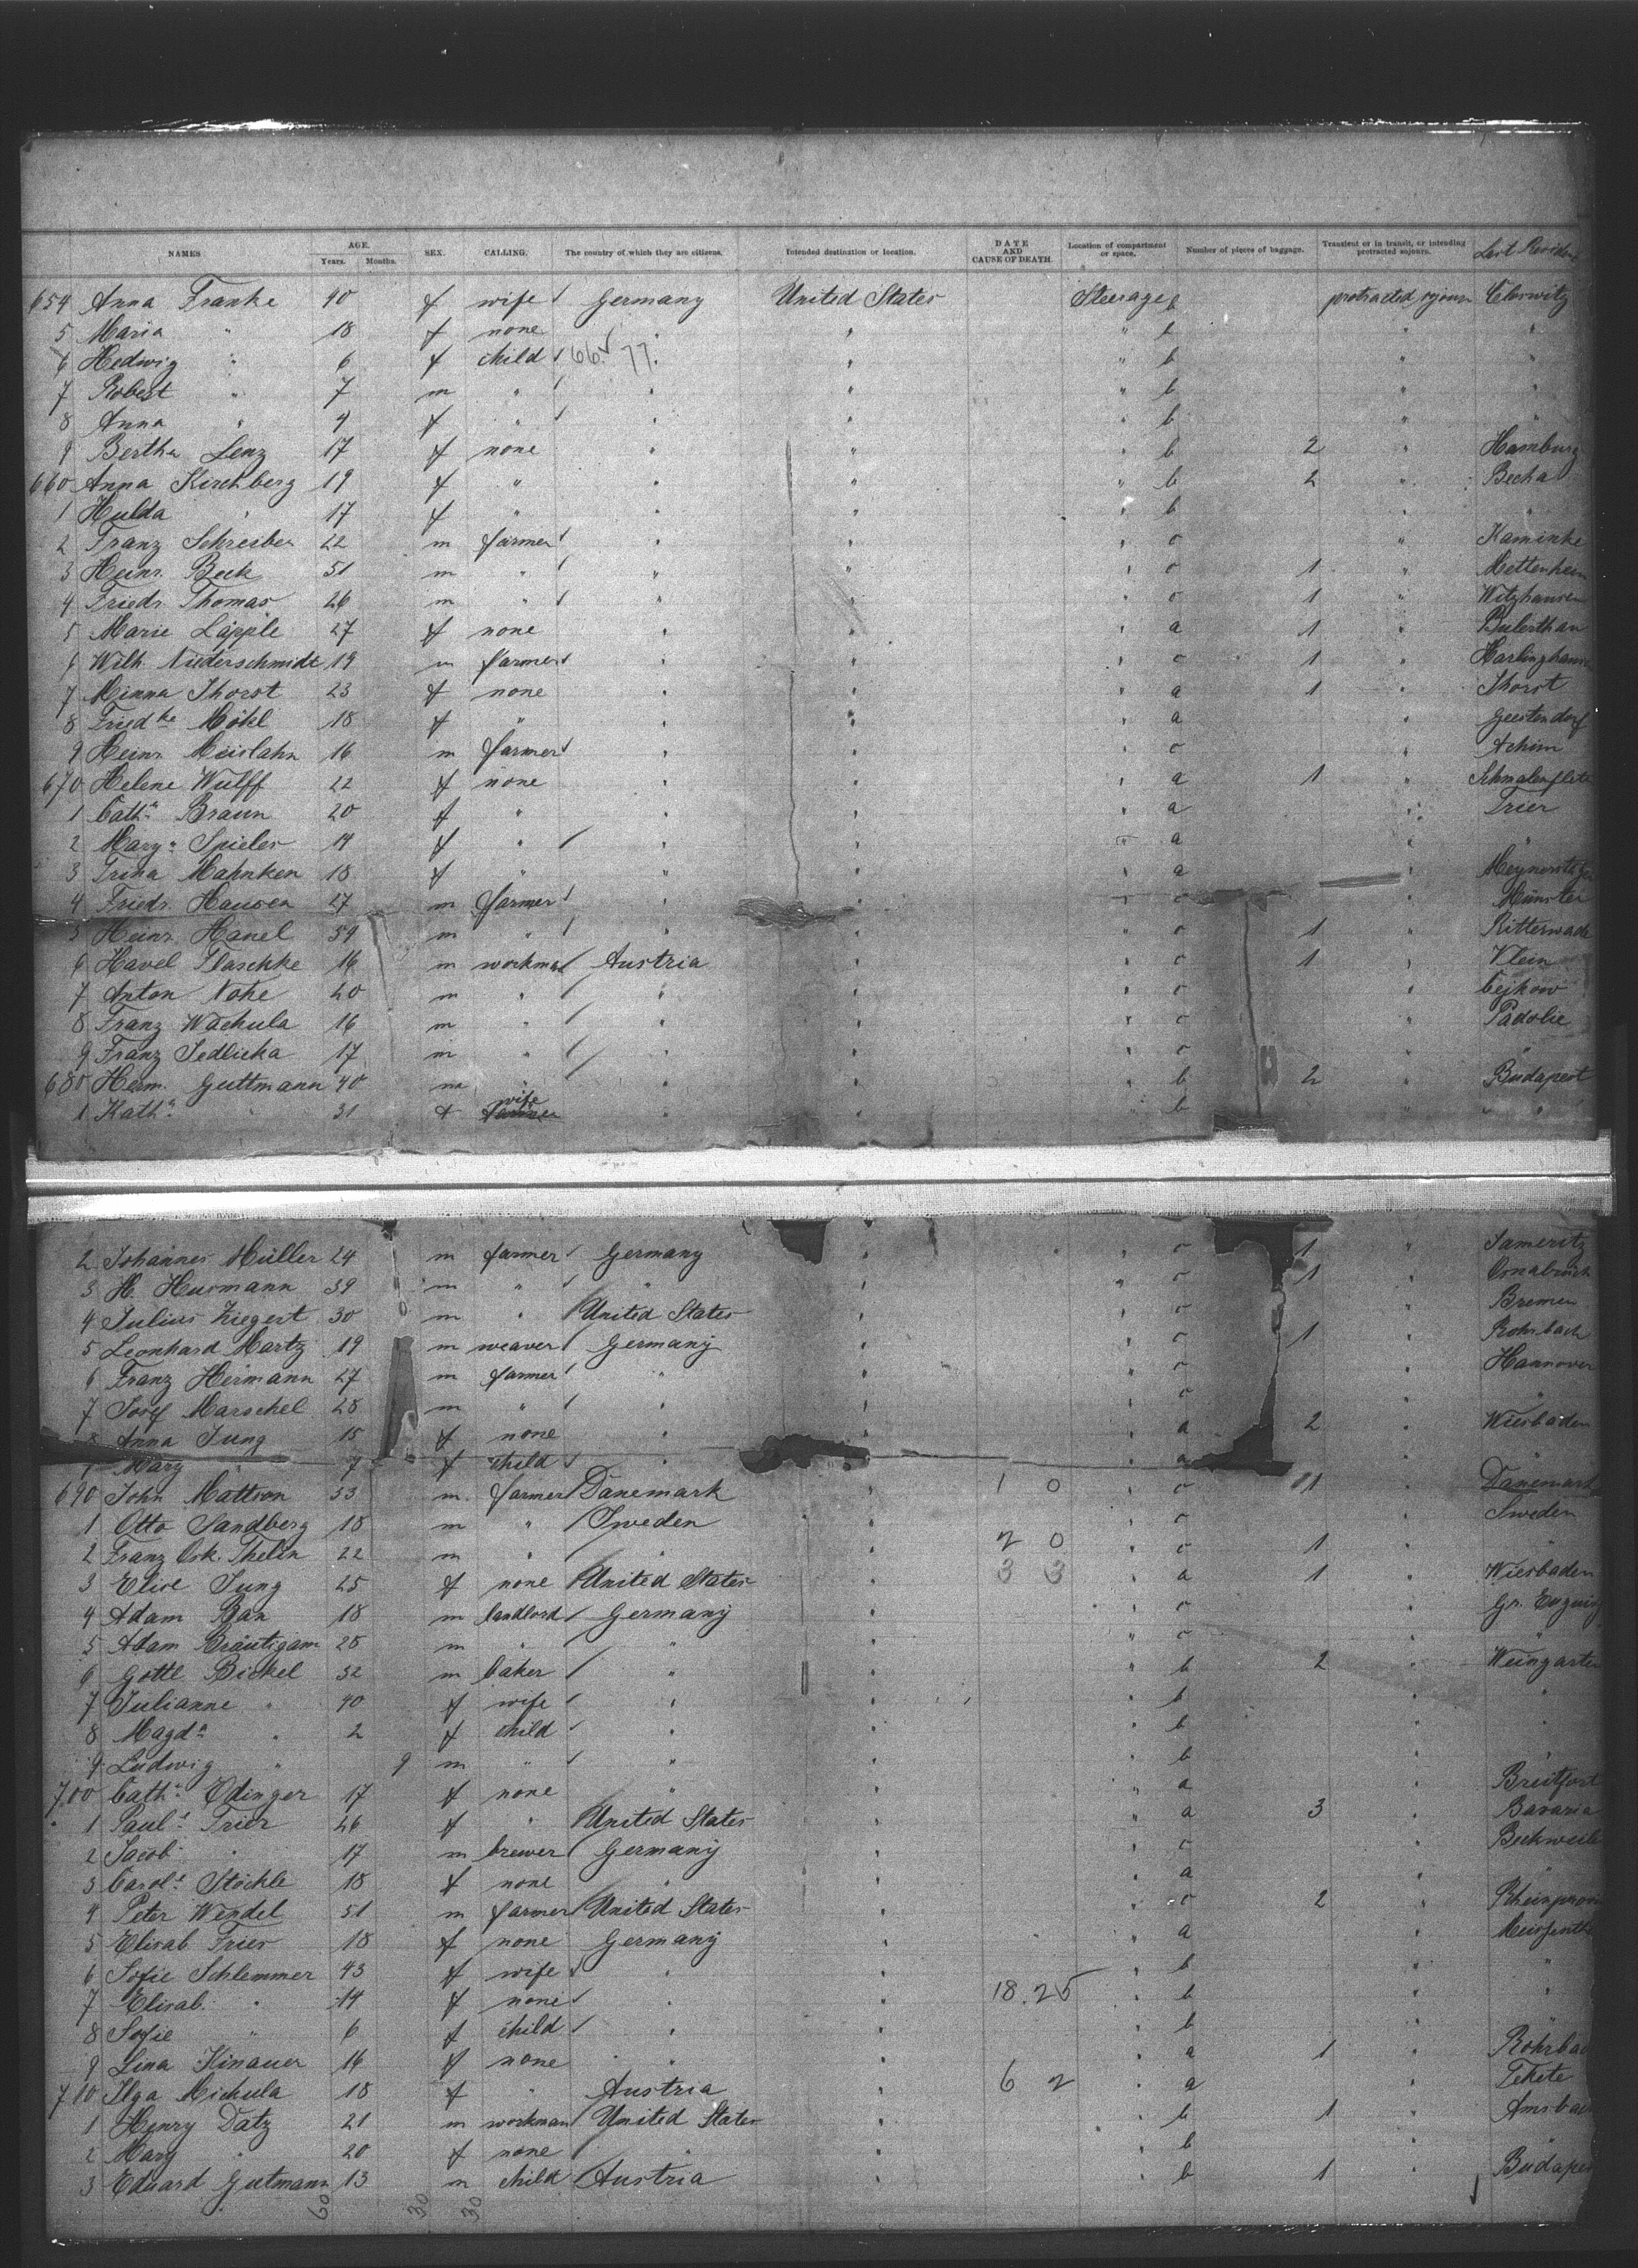 NAMES AGE. Years. Months. SEX. CALLING. The country of which they are citizens. Intended destination or location. DATE AND CAUSE OF DEATH. Location of compartment or space. Number of pieces of baggage. Transient or in transit, or intending protracted sojourn. Last Residen
654 Anna Franke 40 f wife Germany United States Steerage b protracted sojourn
5 Maria " 18 f none " " " b " "
6 Hedwig " 6 f child 66. 77. " " b " "
7 Robert " 7 m " " " " b " "
8 Anna " 4 f " " " " b " "
9 Bertha Lenz 17 f none " " " b 2 " Hamburg
660 Anna Kirchberg 19 f " " " " b 2 " Becha
1 Hulda " 17 f " " " " b " "
2 Franz Schreiber 22 m farmer " " " c " Kaminke
3 Heinr. Beck 51 m " " " " c 1 " Mettenheim
4 Friedr. Thomas 26 m " " " " c 1 " Witzhausen
5 Marie Läpple 27 f none " " " a 1 "
6 Wilh. Niederschmidt 19 m farmer " " " c 1 " Harlinghausen
7 Minna Thorst 23 f none " " " a 1 " Thorst
8 Friedke Möhl 18 f " " " " a " Geestendorf
9 Heinr. Meislahn 16 m farmer " " " c " Achim
670 Helene Wulff 22 f none " " " a 1 " Schmalenflete
1 Cath. Braun 20 f " " " " a " Trier
2 Marg. Spieler 19 f " " " " a " "
3 Trina Mahnken 18 f " " " " a "
4 Friedr. Hausen 27 m farmer " " " c " Münster
5 Heinr. Hanel 59 m " " " " c 1 "
6 Havel Flaschke 16 m workman Austria " " c 1 " Vlein
7 Anton Nohe 20 m " " " " c " Cejkow
8 Franz Wachula 16 m " " " " c " Padolie
9 Franz Jedlicka 17 m " " " " c " "
680 Herm. Guttmann 40 m " " " " b 2 " Budapest
1 Kath. " 31 f wife " " " b " "
2 Johannes Müller 24 m farmer Germany " " c 1 " Sameritz
3 H. Husmann 39 m " " " " c 1 " Osnabrück
4 Julius Ziegert 30 m " United States " " c " Bremen
5 Leonhard Martz 19 m weaver Germany " " c 1 " Rohrbach
6 Franz Hermann 27 m farmer " " " c " Hannover
7 Josef Marschel 28 m " " " " c " "
8 Anna Jung 15 f none " " " a 2 " Wiesbaden
9 Mary " 7 f child " " " a " "
690 John Mattson 33 m farmer Danemark " 1 0 " c 1 " Danemark
1 Otto Sandberg 18 m " Sweden " " c " Sweden
2 Franz Osk. Thelin 22 m " " " 2 0 " c 1 " "
3 Elise Jung 25 f none United States " 3 3 " a 1 " Wiesbaden
4 Adam Ban 18 m landlord Germany " " c "
5 Adam Bräutigam 28 m " " " " c " "
6 Gottl Bickel 32 m baker " " " b 2 " Weingarten
7 Julianne " 40 f wife " " " b " "
8 Magda " 2 f child " " " b " "
9 Ludwig " 9 m " " " " b " "
700 Cath. Edinger 17 f none " " " a "
1 Paul. Trier 26 f " United States " " a 3 " Bavaria
2 Jacob " 17 m brewer Germany " " c "
3 Carol. Stöckle 18 f none " " " a " "
4 Peter Wendel 51 m farmer United States " " c 2 " Rheinprov
5 Elisab Fries 18 f none Germany " " a "
6 Sofie Schlemmer 43 f wife " " " b " "
7 Elisab. " 14 f none " " 18.25 " b " "
8 Sofie " 6 f child " " " b " "
9 Lina Kinauer 16 f none " " " a 1 " Rohrbac
710 Ilga Michula 18 f " Austria " 6 2 " a " Tekete
1 Henry Datz 21 m workman United States " " b 1 " Ansbach
2 Mary " 20 f none " " " b " "
3 Eduard Gutmann 13 m child Austria " " b 1 " Budapes
60 30 30